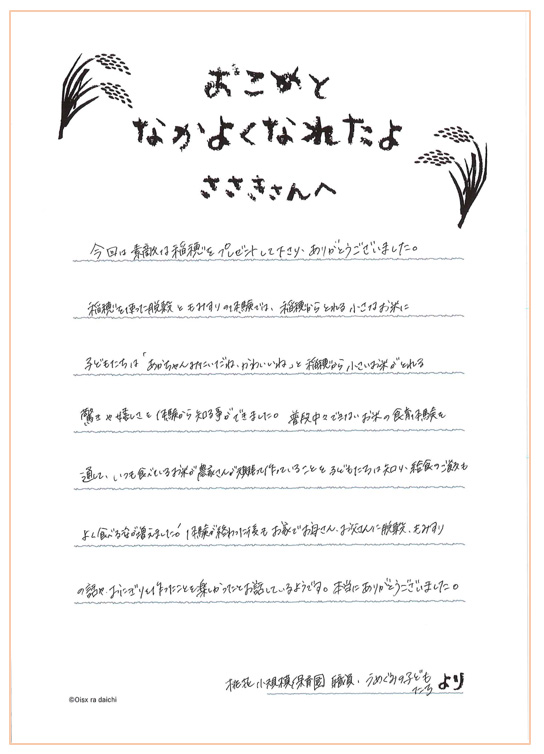 おこめと
なかよくなれたよ
ささきさんへ
今回は素敵な稲穂をプレゼントして下さり、ありがとうございました。
稲穂を使った脱穀ともみすりの体験では、稲穂からとれる小さなお米に
子どもたちは「あかちゃんみたいだね、かわいいね」と稲穂から小さいお米がとれる
驚きや嬉しさを体験から知る事ができました。普段中々できないお米の食育体験を
通して、いつも食べているお米が農家さんが頑張って作っていることを子どもたちは知り、給食のご飯も
よく食べる姿が増えました！体験が終わった後もお家でお母さん、お父さんに脱穀、もみすり
の話や、おにぎりを作ったことを楽しかったとお話しているようです。本当にありがとうございました。
桃花小規模保育園 職員、うめぐみの子ども
たち より
©Oisx ra daichi